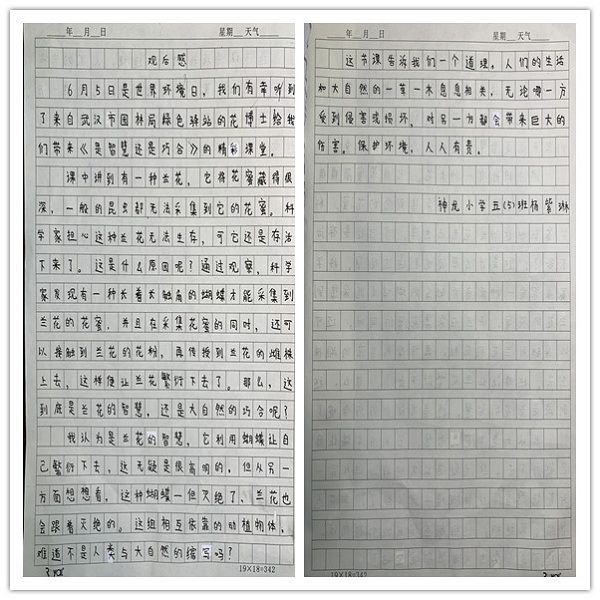 年 月 日 星期 天气
观后感
6月5日是世界环境日,我们有幸听到
了来自武汉市园林局绿色驿站的花博士给我
们带来《是智慧还是巧合》的精彩课堂。
课中讲到有一种兰花,它将花蜜藏得很
深,一般的昆虫都无法采集到它的花蜜。科
学家担心这种兰花无法生存,可它还是存活
下来了。这是什么原因呢?通过观察,科学
家发现有一种长着长触角的蝴蝶才能采集到
兰花的花蜜,并且在采集花蜜的同时,还可
以接触到兰花的花粉,再传授到兰花的雌株
上去,这样便让兰花繁衍下去了。那么,这
到底是兰花的智慧,还是大自然的巧合呢?
我认为是兰花的智慧,它利用蝴蝶让自
己繁衍下去,这无疑是很高明的。但从另一
方面想想看,这种蝴蝶一但灭绝了,兰花也
会跟着灭绝的。这组相互依靠的动植物体,
难道不是人类与大自然的缩写吗?
19×18=342
年 月 日 星期 天气
这节课告诉我们一个道理。人们的生活
和大自然的一草一木息息相关,无论哪一方
受到侵害或损坏,对另一方都会带来巨大的
伤害。保护环境,人人有责。
神龙小学五(5)班杨紫琳
19×18=342